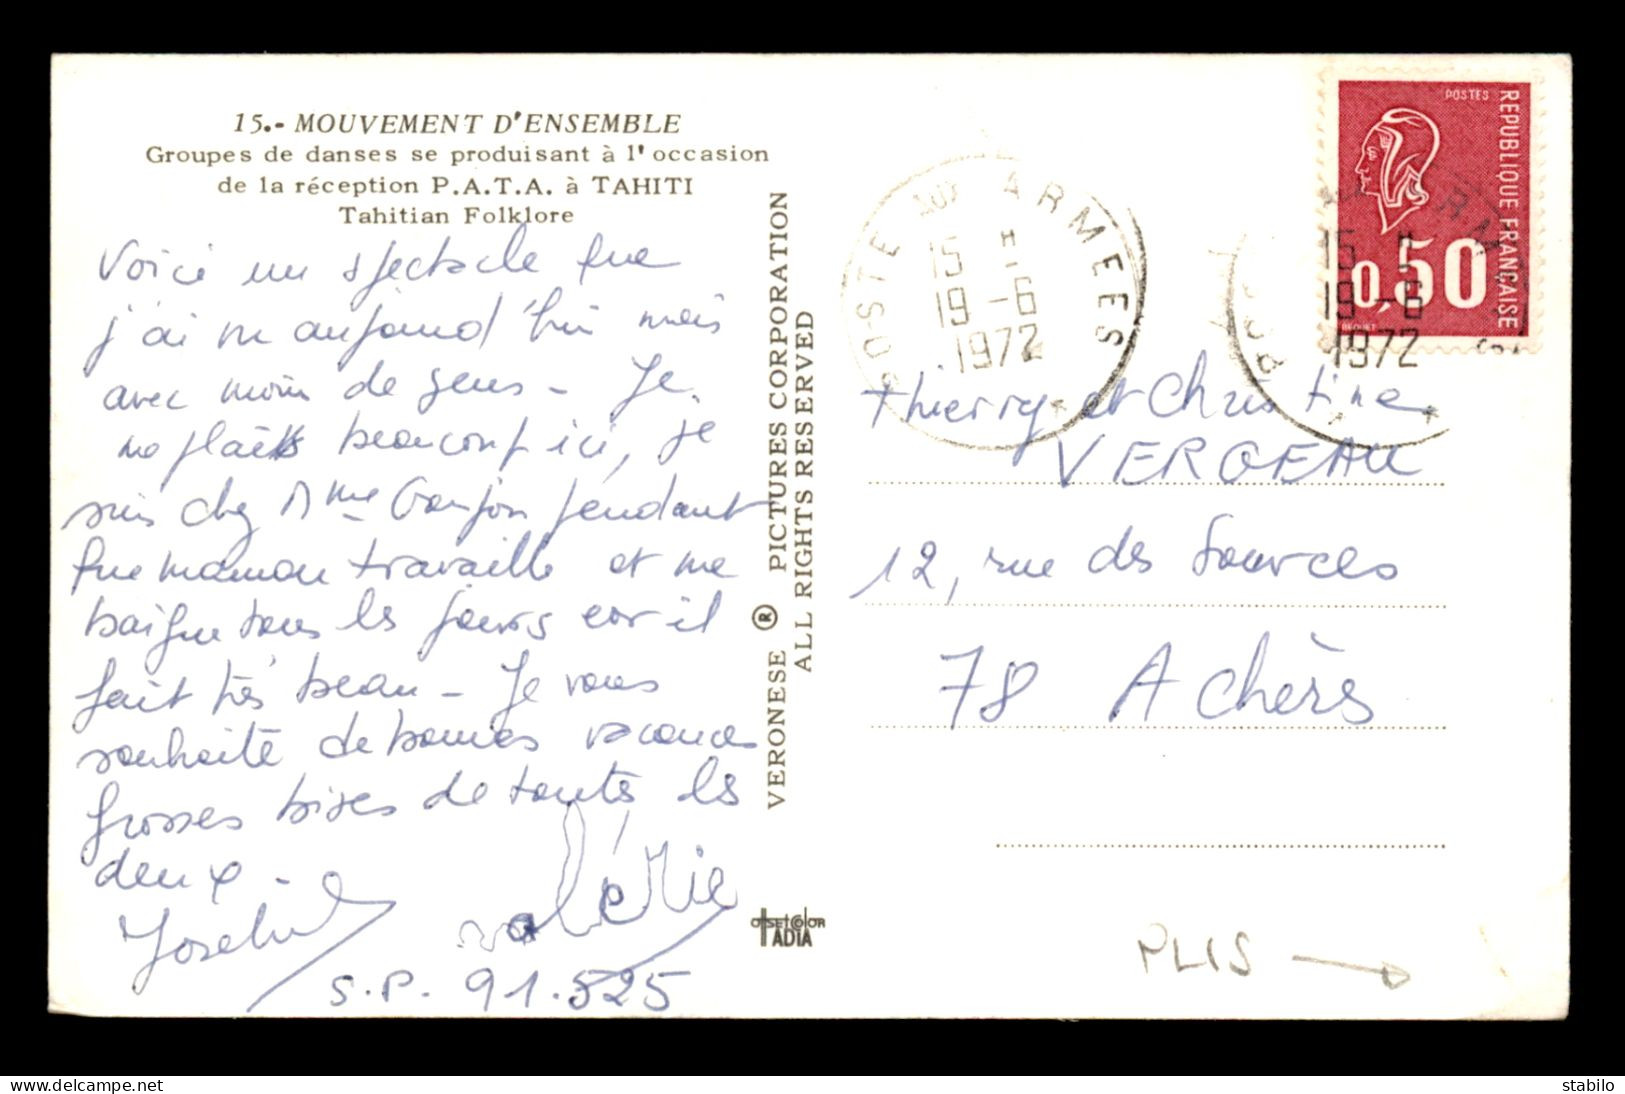 15.- MOUVEMENT D'ENSEMBLE
Groupes de danses se produisant à l'occasion
de la réception P.A.T.A. à TAHITI
Tahitian Folklore
Voici un spectacle que
j'ai vu aujourd'hui mais
avec moins de gens - Je
me plais beaucoup ici, je
suis chez Mme pendant
que maman travaille et me
baigne tous les jours car il
fait très beau - Je vous
souhaite de bonnes vacances
Grosses bises de toutes les
deux -
valérie
S.P. 91.525
VERONESE ® PICTURES CORPORATION
ALL RIGHTS RESERVED
OFFSETCOLOR
TADIA
POSTE AUX ARMEES
15 H
19 -6
1972
POSTES
REPUBLIQUE FRANÇAISE
0,50
BEQUET
15 H
19-6
1972
Thierry et Christine
VERGEAU
12, rue des Sources
78 Achères
PLIS →
stabilo